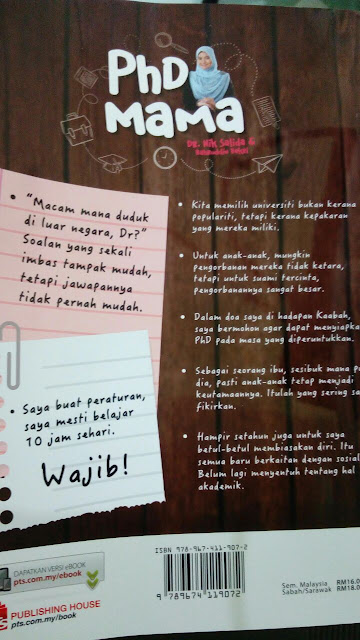 PhD
MAMA
Dr. Nik Salida &
• "Macam mana duduk
di luar negara, Dr?"
Soalan yang sekali
imbas tampak mudah,
tetapi jawapannya
tidak pernah mudah.
• Saya buat peraturan,
saya mesti belajar
10 jam sehari.
Wajib!
• Kita memilih universiti bukan kerana
populariti, tetapi kerana kepakaran
yang mereka miliki.
• Untuk anak-anak, mungkin
pengorbanan mereka tidak ketara,
tetapi untuk suami tercinta,
pengorbanannya sangat besar.
• Dalam doa saya di hadapan Kaabah,
saya bermohon agar dapat menyiapka
PhD pada masa yang diperuntukkan.
• Sebagai seorang ibu, sesibuk mana p
dia, pasti anak-anak tetap menjadi
keutamaannya. Itulah yang sering sa
fikirkan.
• Hampir setahun juga untuk saya
betul-betul membiasakan diri. Itu
semua baru berkaitan dengan sosial
Belum lagi menyentuh tentang hal
akademik.
DAPATKAN VERSI eBOOK
pts.com.my/ebook
PUBLISHING HOUSE
pts.com.my
ISBN 978-967-411-907-2
9 789674 119072
Sem. Malaysia RM16.0
Sabah/Sarawak RM18.0